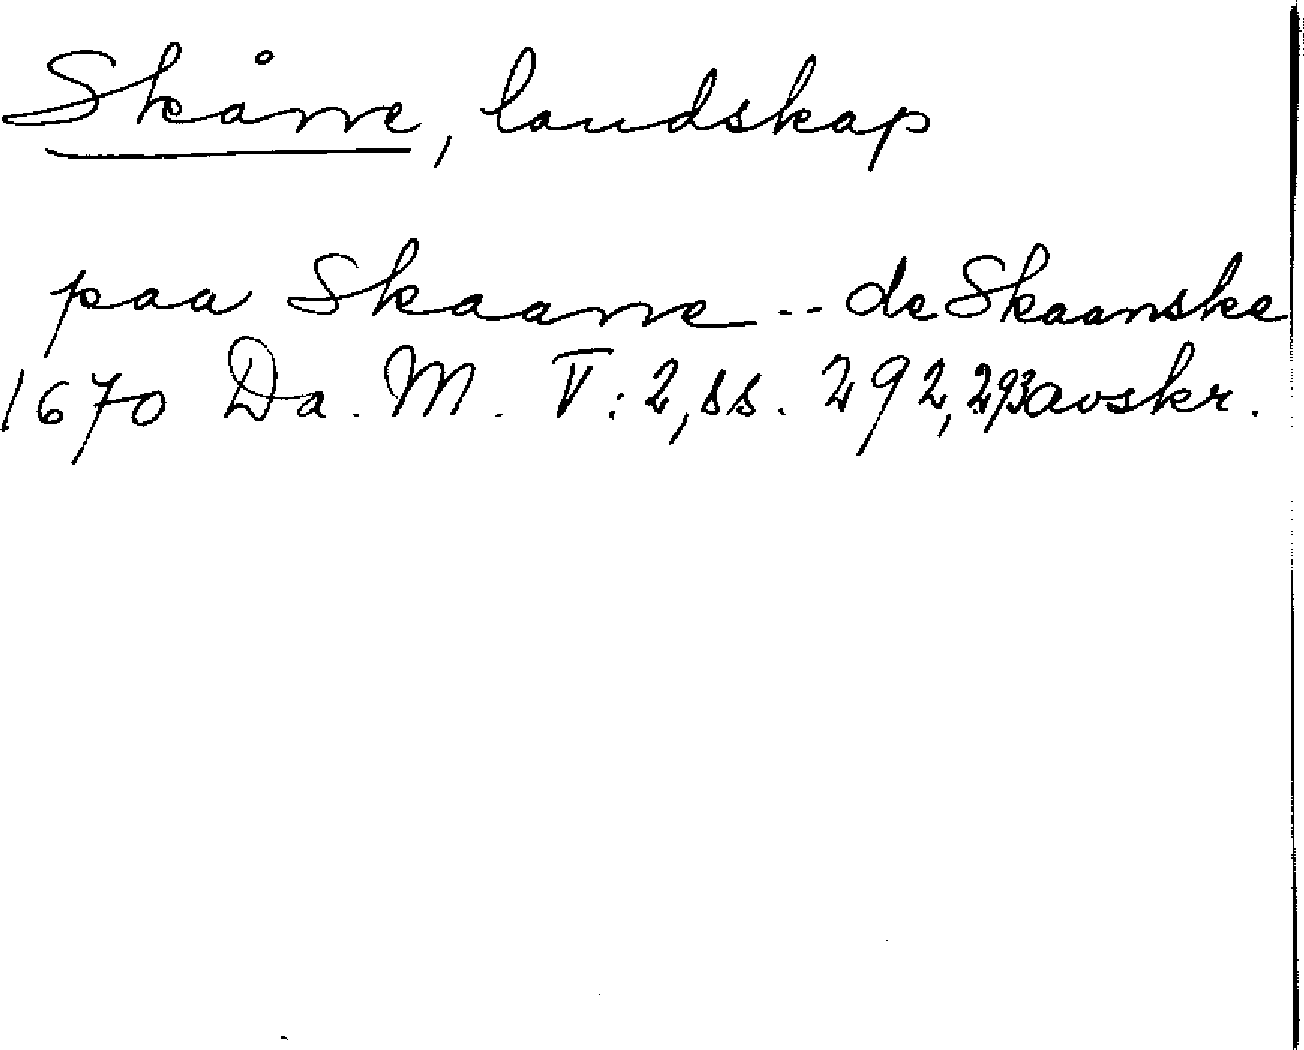 Skåne, landskap
paa Skaane -- de Skaanske
1670 Da. M. V: 2, ss. 292, 293 avskr.